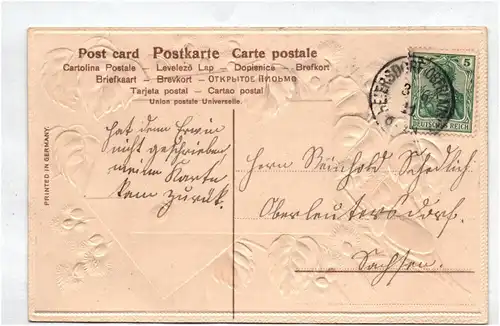 Post card Postkarte Carte postale
Cartolina Postale - Levelező Lap - Dopisnice - Brefkort
Briefkaart - Brevkort - ОТКРЫТОЕ ПИСЬМО
Tarjeta postal - Cartao postal
Union postale Universelle.
PRINTED IN GERMANY.
5
DEUTSCHES REICH
hat denn Erwin
nicht geschrieben
meine Karte
kam zurück.
Herrn Reinhold Schedlich
Oberleutersdorf.
Sachsen.